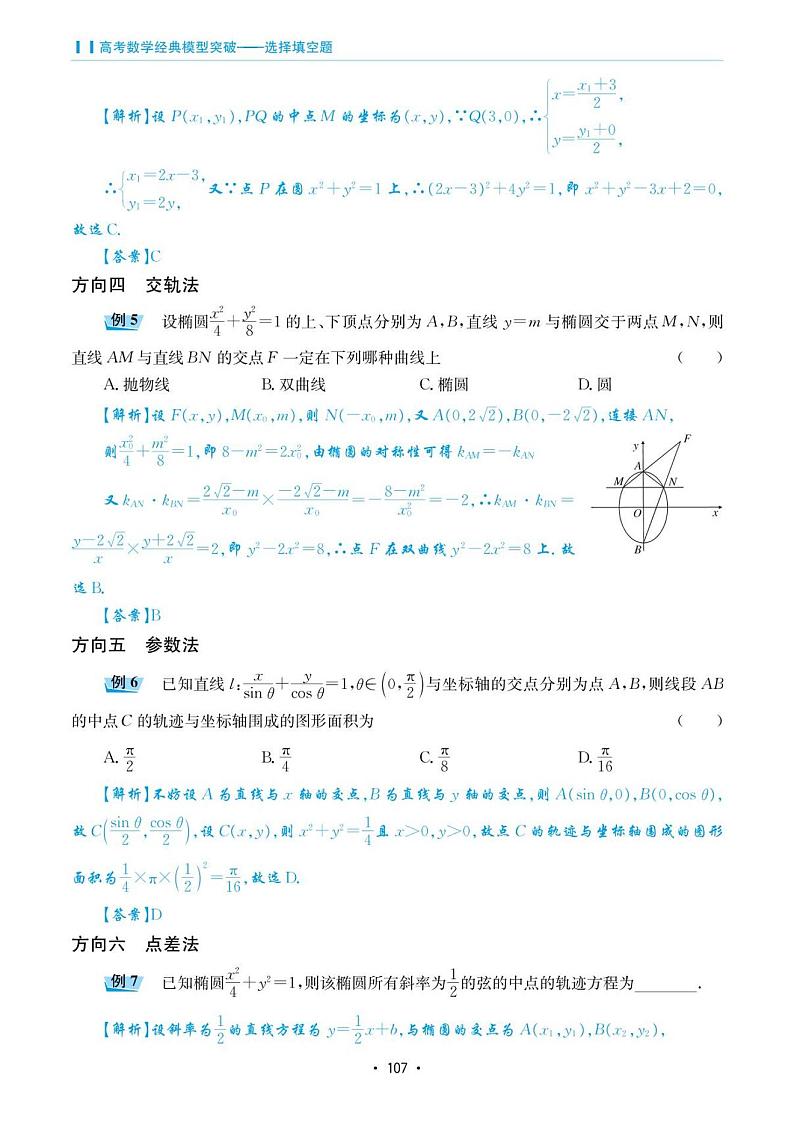 高考数学经典模型突破——选择填空题
【解析】设 P(x₁,y₁),PQ 的中点 M 的坐标为(x,y),∵Q(3,0),∴{x=(x₁+3)/2, y=(y₁+0)/2,
∴{x₁=2x-3, y₁=2y, 又∵点 P 在圆 x²+y²=1 上,∴(2x-3)²+4y²=1,即 x²+y²-3x+2=0,
故选 C.
【答案】C
方向四 交轨法
例 5 设椭圆x²/4+y²/8=1 的上、下顶点分别为 A,B,直线 y=m 与椭圆交于两点 M,N,则
直线 AM 与直线 BN 的交点 F 一定在下列哪种曲线上 ( )
A. 抛物线 B. 双曲线 C. 椭圆 D. 圆
【解析】设 F(x,y),M(x₀,m),则 N(-x₀,m),又 A(0,2√2),B(0,-2√2),连接 AN,
则x₀²/4+m²/8=1,即 8-m²=2x₀²,由椭圆的对称性可得 k_AM=-k_AN
又 k_AN·k_BN=(2√2-m)/x₀×(-2√2-m)/x₀=-(8-m²)/x₀²=-2,∴k_AM·k_BN=
(y-2√2)/x×(y+2√2)/x=2,即 y²-2x²=8,∴点 F 在双曲线 y²-2x²=8 上. 故
选 B.
y
F
A
M
N
O
x
B
【答案】B
方向五 参数法
例 6 已知直线 l:x/sin θ+y/cos θ=1,θ∈(0,π/2)与坐标轴的交点分别为点 A,B,则线段 AB
的中点 C 的轨迹与坐标轴围成的图形面积为 ( )
A. π/2 B. π/4 C. π/8 D. π/16
【解析】不妨设 A 为直线与 x 轴的交点,B 为直线与 y 轴的交点,则 A(sin θ,0),B(0,cos θ),
故 C(sin θ/2,cos θ/2),设 C(x,y),则 x²+y²=1/4且 x>0,y>0,故点 C 的轨迹与坐标轴围成的图形
面积为1/4×π×(1/2)²=π/16,故选 D.
【答案】D
方向六 点差法
例 7 已知椭圆x²/4+y²=1,则该椭圆所有斜率为1/2的弦的中点的轨迹方程为________.
【解析】设斜率为1/2的直线方程为 y=1/2x+b,与椭圆的交点为 A(x₁,y₁),B(x₂,y₂),
• 107 •